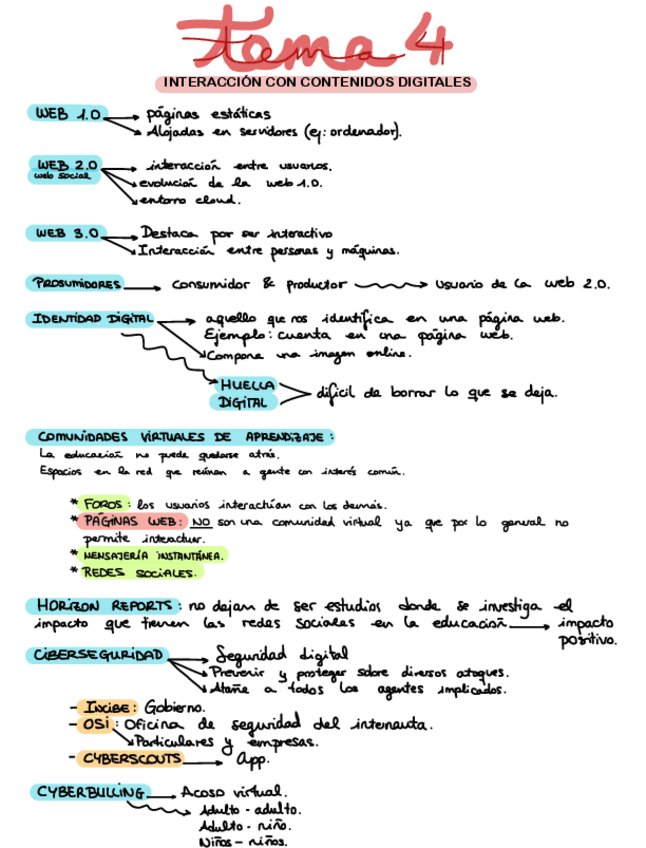 tema 4
INTERACCIÓN CON CONTENIDOS DIGITALES
WEB 1.0 → páginas estáticas
→ Alojadas en servidores (ej: ordenador).
WEB 2.0 → interacción entre usuarios.
web social → evolución de la web 1.0.
→ entorno cloud.
WEB 3.0 → Destaca por ser interactivo
→ Interacción entre personas y máquinas.
PROSUMIDORES → consumidor & productor → Usuario de la web 2.0.
IDENTIDAD DIGITAL → aquello que nos identifica en una página web.
Ejemplo: cuenta en una página web.
→ Compone una imagen online.
HUELLA
DIGITAL > difícil de borrar lo que se deja.
COMUNIDADES VIRTUALES DE APRENDIZAJE:
La educación no puede quedarse atrás.
Espacios en la red que reúnan a gente con interés común.
* FOROS: los usuarios interactúan con los demás.
* PÁGINAS WEB: NO son una comunidad virtual ya que por lo general no
permite interactuar.
* MENSAJERÍA INSTANTÁNEA.
* REDES SOCIALES.
HORIZON REPORTS: no dejan de ser estudios donde se investiga el
impacto que tienen las redes sociales en la educación → impacto
positivo.
CIBERSEGURIDAD → Seguridad digital
→ Prevenir y proteger sobre diversos ataques.
→ Atañe a todos los agentes implicados.
- INCIBE: Gobierno.
- OSI: Oficina de seguridad del internauta.
→ Particulares y empresas.
- CYBERSCOUTS → App.
CYBERBULLING → Acoso virtual.
→ Adulto - adulto.
Adulto - niño.
Niños - niños.